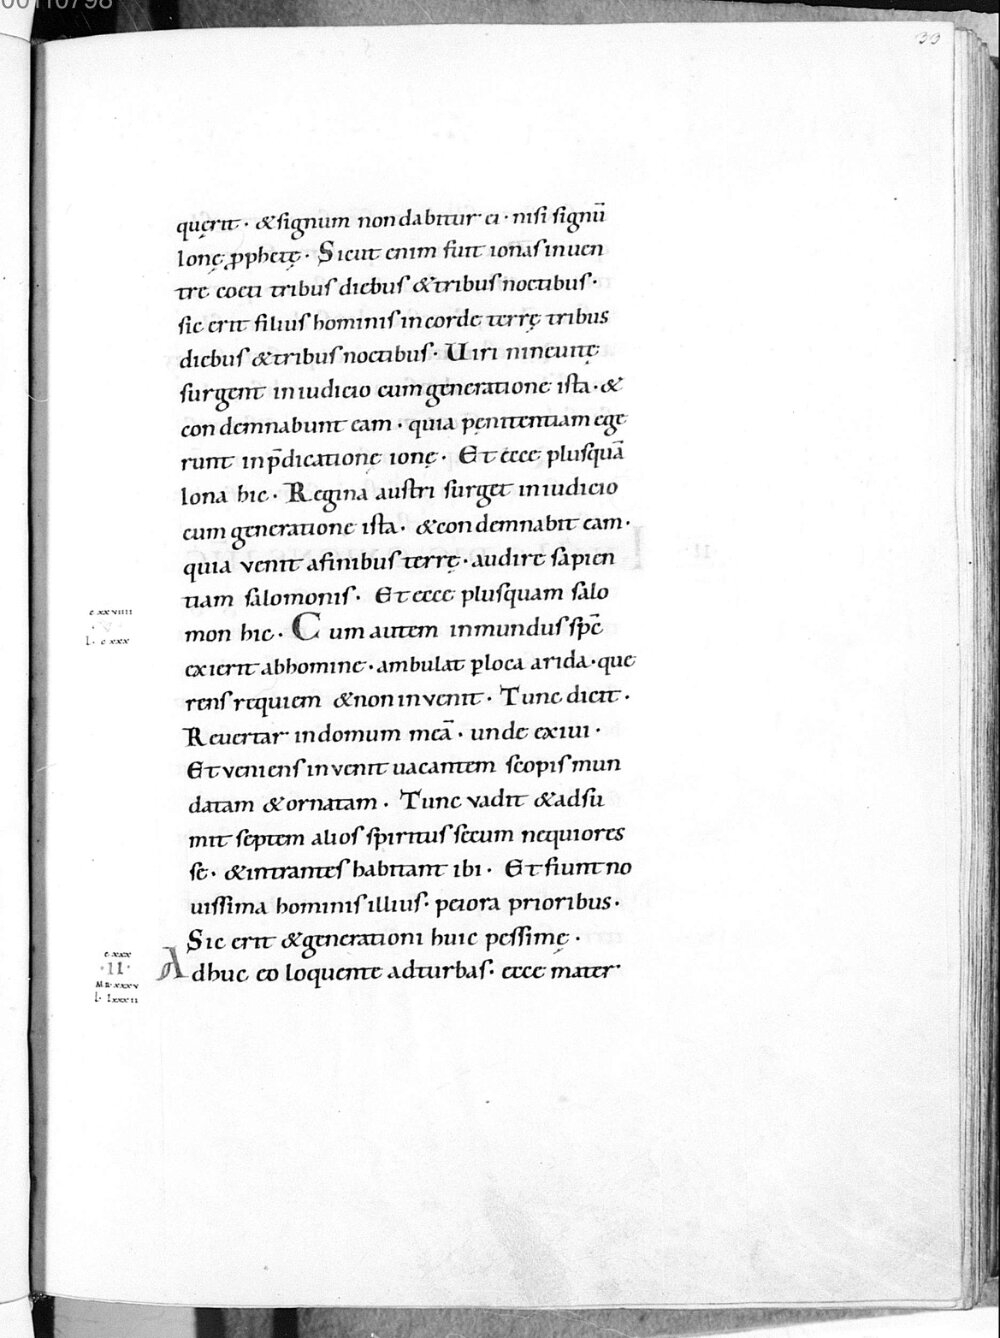 00110798
33
quęrit · & signum non dabitur ei · nisi signū
Ionę ꝓphetę · Sicut enim fuit ionas in uen
tre coeti tribus diebus & tribus noctibus ·
sic erit filius hominis in corde terrę tribus
diebus & tribus noctibus · Uiri nineuitę
surgent in iudicio cum generatione ista · &
condemnabunt eam · quia pęnitentiam ege
runt in p̄dicatione ionę · Et ecce plusquā
Iona hic · Regina austri surget in iudicio
cum generatione ista · & condemnabit eam ·
quia venit a finibus terrę · audire sapien
tiam salomonis · Et ecce plusquam salo
mon hic · Cum autem inmundus spc̄
exierit ab homine · ambulat ꝑ loca arida · que
rens requiem & non invenit · Tunc dicit ·
Reuertar in domum meā · unde exiui ·
Et veniens invenit uacantem scopis mun
datam & ornatam · Tunc vadit & adsu
mit septem alios spiritus secum nequiores
se · & intrantes habitant ibi · Et fiunt no
uissima hominis illius · peiora prioribus ·
Sic erit & generationi huic pessimę ·
Adhuc eo loquente ad turbas · ecce mater
cxxviiii
· V ·
L · cxxx
cxxx
· II ·
MR · xxxv
L · lxxxii